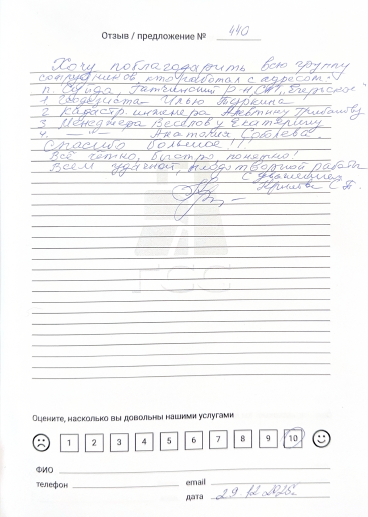 Отзыв / предложение № 440
Хочу поблагодарить всю группу
сотрудников, кто работал с адресом:
п. Суйда, Гатчинский р-н, СНТ „Березка"
1. Геодезиста – Илью Туркина
2. Кадастр. инженера Алевтину
3. Менеджера Веселову Екатерину
4. –"– Анатолия Соболева.
Спасибо большое!!!
Всё четко, быстро, понятно!
Всем удачной, плодотворной работы
С уважением
С.П.
ГСС
Оцените, насколько вы довольны нашими услугами
1 2 3 4 5 6 7 8 9 10
ФИО
телефон email
дата 29.12.2025г.